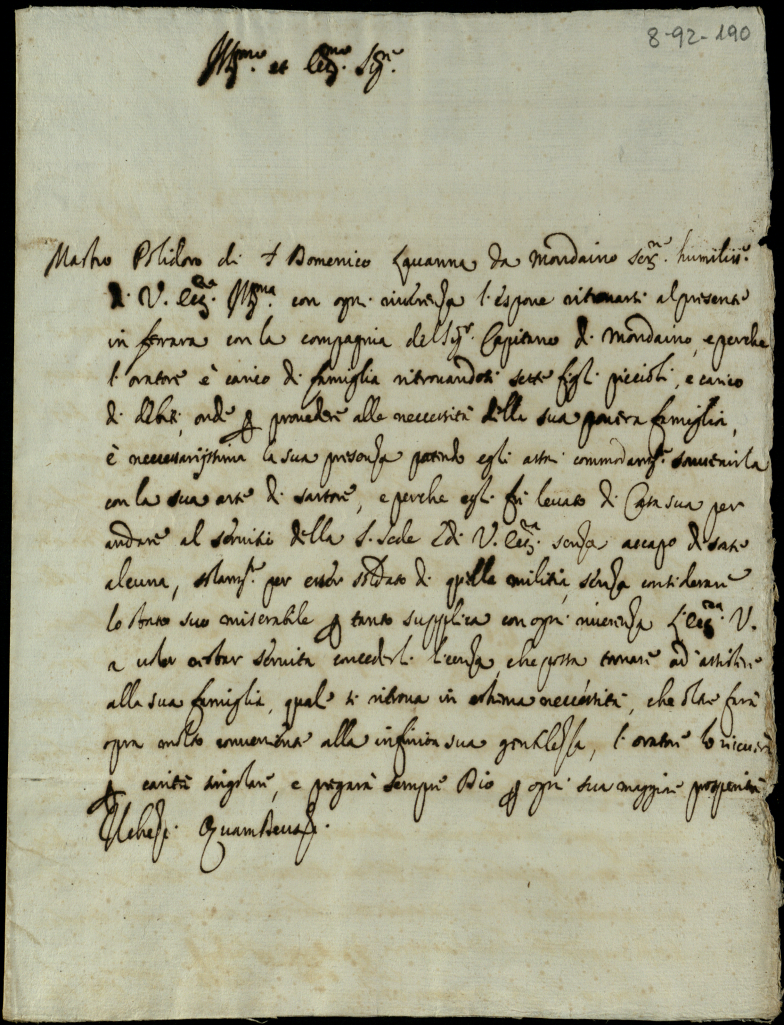 8-92-190
Ill.mo et Ecc.mo Sig.re
Mastro Polidoro di Domenico da Mondaino ser.re humiliss.o
di V. Ecc.za Ill.ma con ogni riverenza l'espone ritrovarsi al presente
in ferrara con la compagnia del Sig.r Capitano di Mondaino, e perche
l'oratore è carico di famiglia ritrovandosi sette figli piccioli, e carico
di debiti, onde p provedere alle necessità della sua povera famiglia,
è necessarijssima la sua presenza potendo egli assai commodam.te sovenirla
con la sua arte di sartore, e perche egli fù levato di Casa sua per
andare al servitio della S. Sede e di V. Ecc.za senza
alcuna, solam.te per esser soldato di quella militia, senza considerare
lo stato suo miserabile p tanto supplica con ogni riverenza l'Ecc.za V.
a voler restar servita concederli licenza, che possa tornare ad assistere
alla sua famiglia, qual si ritrova in estrema necessità, che oltre farà
opra molto conveniente alla infinita sua gentilezza, l'oratore lo riceverà
p carità singolare, e pregarà sempre Dio p ogni sua maggior prosperità
Quam Deus